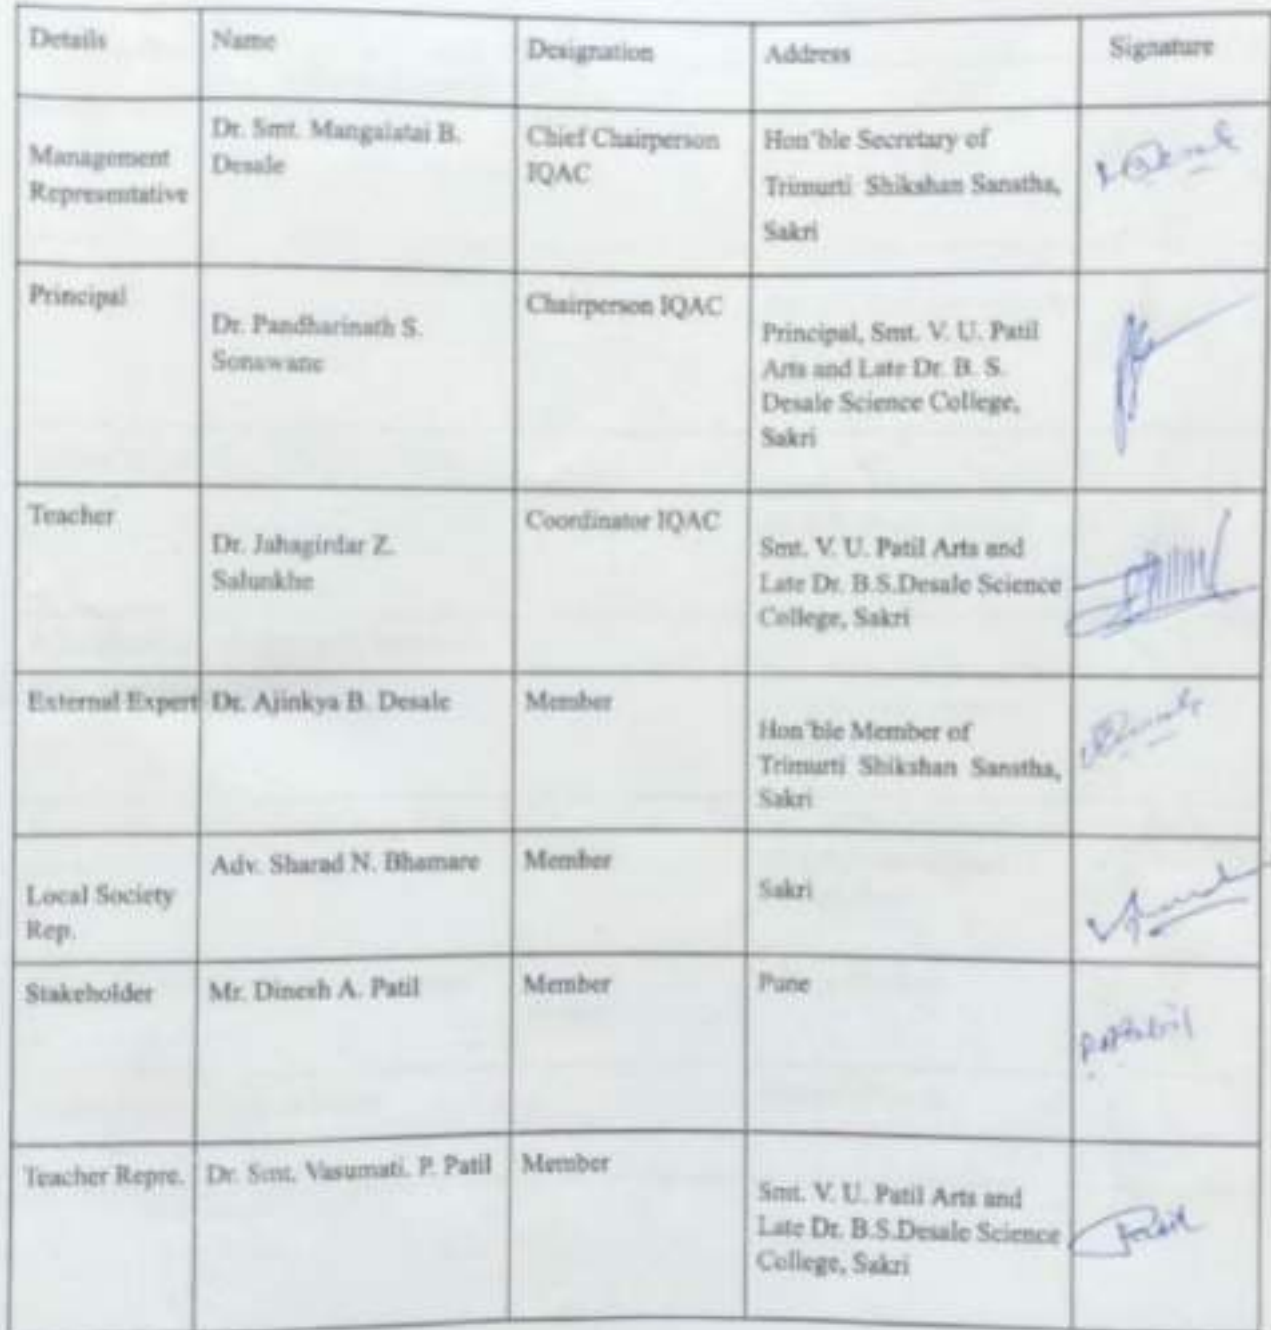 Details
Name
Designation
Address
Signature
Management
Representative
Dr. Smt. Mangalatai B.
Desale
Chief Chairperson
IQAC
Hon'ble Secretary of
Trimurti Shikshan Sanstha,
Sakri
Principal
Dr. Pandharinath S.
Sonawane
Chairperson IQAC
Principal, Smt. V. U. Patil
Arts and Late Dr. B. S.
Desale Science College,
Sakri
Teacher
Dr. Jahagirdar Z.
Salunkhe
Coordinator IQAC
Smt. V. U. Patil Arts and
Late Dr. B.S.Desale Science
College, Sakri
External Expert
Dr. Ajinkya B. Desale
Member
Hon'ble Member of
Trimurti Shikshan Sanstha,
Sakri
Local Society
Rep.
Adv. Sharad N. Bhamare
Member
Sakri
Stakeholder
Mr. Dinesh A. Patil
Member
Pune
Teacher Repre.
Dr. Smt. Vasumati. P. Patil
Member
Smt. V. U. Patil Arts and
Late Dr. B.S.Desale Science
College, Sakri